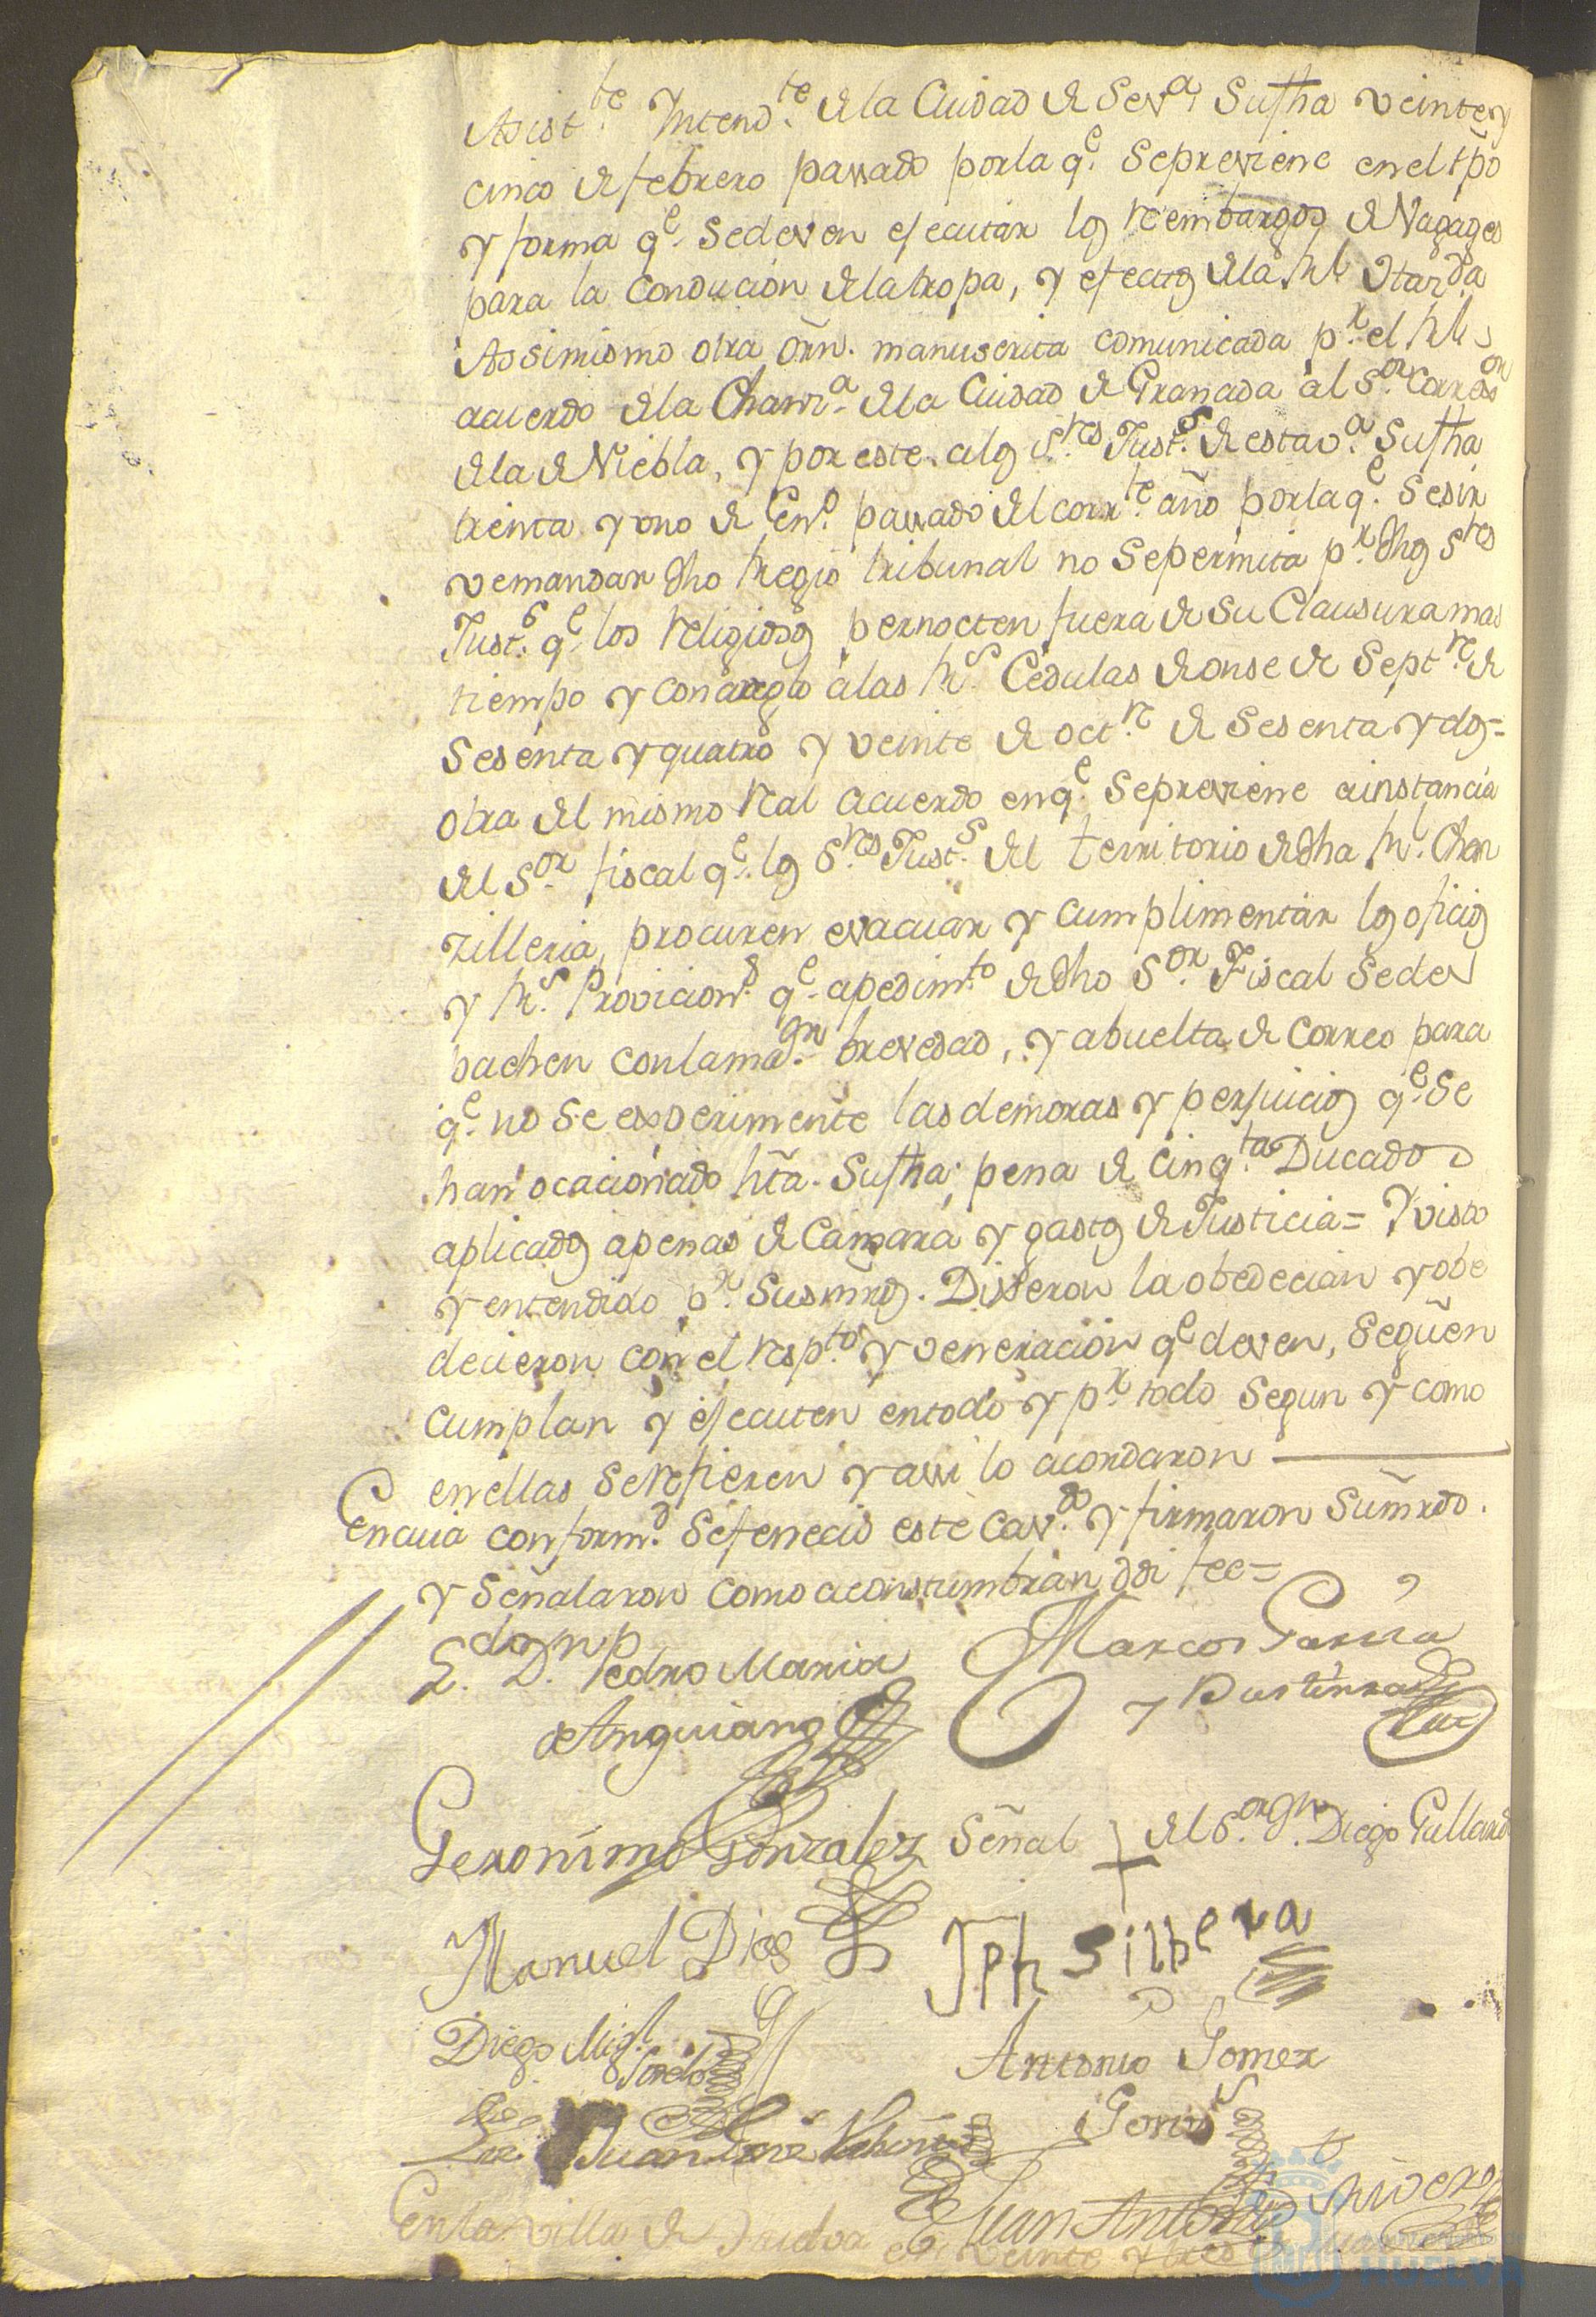 Asist.te Yntend.te de la Ciudad de Sev.a Su fha veinte y
cinco de febrero passado por la q.e se previene en el tpo
y forma q.e se deven ejecutar los reembargos de Vagages
para la Conducion de la tropa, y efectos de la Rl
Assimismo otra orn. manuscrita comunicada p.r el Rl
acuerdo de la Chanz.a de la Ciudad de Granada al S.or Corre.or
de la de Niebla, y por este a los S.res Just.s de esta v.a Su fha
treinta y uno de En.o passado del corr.te año por la q.e se sir
ve mandar dho Regio tribunal no se permita p.r dhos S.res
Just.s q.e los Religiosos pernocten fuera de su Clausura mas
tiempo y con arreglo a las R.s Cedulas de onse de Sept.re de
sesenta y quatro y veinte de oct.re de sesenta y dos=
otra del mismo Real acuerdo en q.e se previene a instancia
del S.or fiscal q.e los S.res Just.s del territorio de dha R.l Chan
zilleria, procuren evacuar y cumplimentar los oficios
y R.s Provicion.s q.e a pedim.to de dho S.or Fiscal se des
pachen con la ma.or brevedad, y a buelta de Correo para
q.e no se experimente las demoras y perjuicios q.e se
han ocacionado hta. su fha; pena de cinq.ta Ducados
aplicados a penas de Camara y gastos de Justicia= Y visto
y entendido p.r sus mrds. Dixeron la obedecian y obe
decieron con el resp.to y veneracion q.e deven, se gūen
cumplan y ejecuten en todo y p.r todo segun y como
en ellas se refieren y assi lo acordaron
En cuia conform.d se fenecio este Cav.do y firmaron sus mrds.
y señalaron como acostumbran doi fee=
L.do D.n Pedro Maria Marcos Garcia
de Anguiano y
Geronimo Gonzalez Señal + del S.or Diego Gallardo
Manuel Dias Jph Silbera
Diego Mig.l Antonio Gomez
Juan
Juan Antonio Rivero
En la villa de Huelva en veinte y tres de
HUELVA